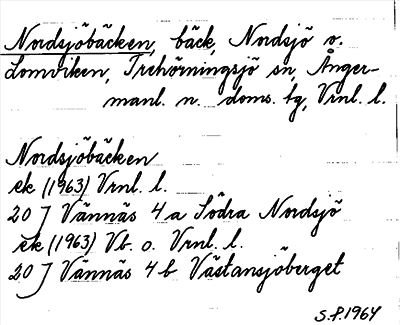 Nordsjöbäcken, bäck, Nordsjö o.
Lomviken, Trehörningsjö sn, Ånger-
manl. n. doms. tg, Vrnl. l.
Nordsjöbäcken
ek (1963) Vrnl. l.
20 J Vännäs 4 a Södra Nordsjö
ek (1963) Vb. o. Vrnl. l.
20 J Vännäs 4 b Västansjöberget
S.P. 1964